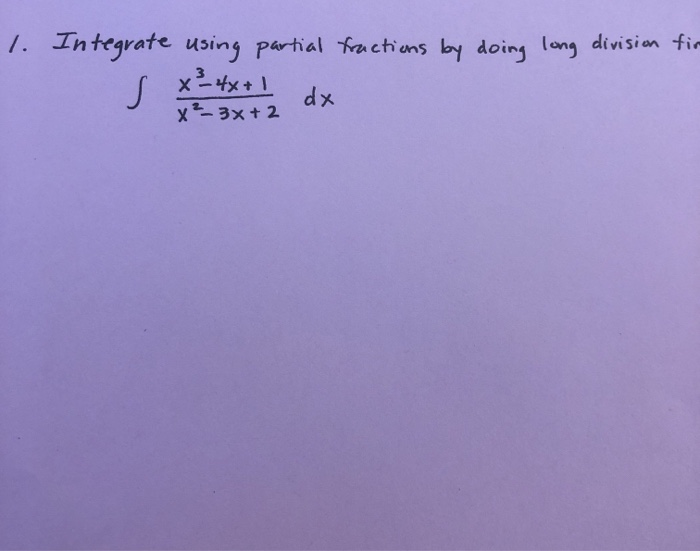 1. Integrate using partial fractions by doing long division fir
∫ x³-4x+1 / x²-3x+2 dx